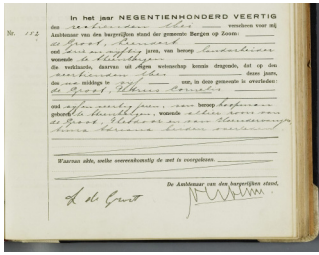 In het jaar NEGENTIENHONDERD VEERTIG
den zestienden Mei verscheen voor mij
Nr. 112 Ambtenaar van den burgerlijken stand der gemeente Bergen op Zoom:
de Groot, Leendert
oud drie en vijftig jaren, van beroep landarbeider
wonende te Steenbergen
die verklaarde, daarvan uit eigen wetenschap kennis dragende, dat op den
veertienden Mei dezes jaars,
des na middags te vijf uur, in deze gemeente is overleden:
de Groot, Petrus Cornelis
oud vijf en veertig jaren, van beroep koopman
geboren te Steenbergen, wonende aldaar zoon van
de Groot, Theodoor en van
Anna Adriana beiden overleden
Waarvan akte, welke overeenkomstig de wet is voorgelezen.
De Ambtenaar van den burgerlijken stand,
L. de Groot